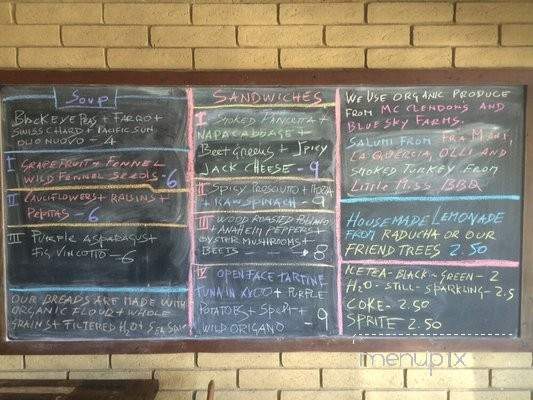 SOUP
BLACKEYE PEAS + FARRO +
SWISS CHARD + PACIFIC SUN
OLIO NUOVO - 4
I GRAPEFRUIT + FENNEL
WILD FENNEL SEEDS - 6
II CAULIFLOWERS + RAISINS +
PEPITAS - 6
III PURPLE ASPARAGUS +
FIG VINCOTTO - 6
OUR BREADS ARE MADE WITH
ORGANIC FLOUR + WHOLE
GRAINS + FILTERED H2O + SEA SALT
SANDWICHES
I SMOKED PANCETTA +
NAPA CABBAGE +
BEET GREENS + SPICY
JACK CHEESE - 9
II SPICY PROSCIUTTO +
+ RAW SPINACH - 9
III WOOD ROASTED
+ ANAHEIM PEPPERS +
OYSTER MUSHROOMS +
BEETS - 8
IV OPEN FACE TARTINE
TUNA IN XVOO + PURPLE
POTATOES + SPELT +
WILD ORIGANO - 9
WE USE ORGANIC PRODUCE
FROM MC CLENDONS AND
BLUE SKY FARMS.
SALUMI FROM FRA MANI,
LA QUERCIA, OLLI AND
SMOKED TURKEY FROM
LITTLE MISS BBQ
HOUSEMADE LEMONADE
FROM RADUCHA OR OUR
FRIEND TREES 2.50
ICE TEA - BLACK - GREEN - 2
H2O - STILL - SPARKLING - 2.5
COKE - 2.50
SPRITE 2.50
menupix